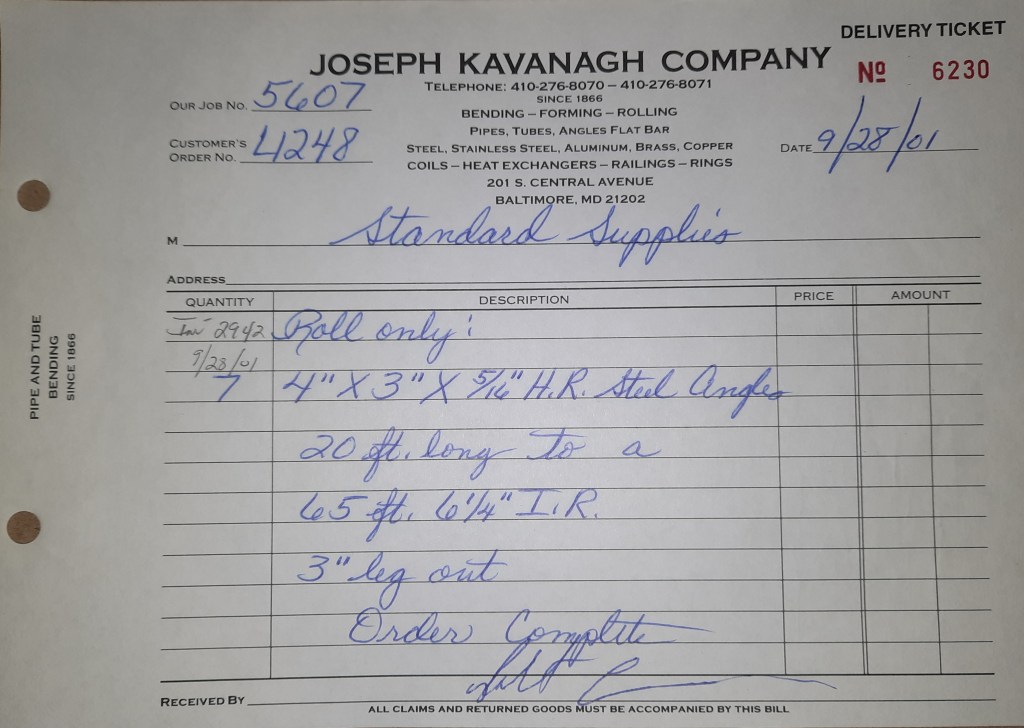 DELIVERY TICKET
JOSEPH KAVANAGH COMPANY
Nº 6230
TELEPHONE: 410-276-8070 – 410-276-8071
SINCE 1866
OUR JOB NO. 5607
BENDING – FORMING – ROLLING
PIPES, TUBES, ANGLES FLAT BAR
CUSTOMER'S
ORDER NO. 4248
STEEL, STAINLESS STEEL, ALUMINUM, BRASS, COPPER
DATE 9/28/01
COILS – HEAT EXCHANGERS – RAILINGS – RINGS
201 S. CENTRAL AVENUE
BALTIMORE, MD 21202
M Standard Supplies
ADDRESS
QUANTITY DESCRIPTION PRICE AMOUNT
Inv 2942 Roll only:
9/28/01
7 4" X 3" X 5/16" H.R. Steel Angles
20 ft. long to a
65 ft. 6 1/4" I.R.
3" leg out
Order Complete
RECEIVED BY
ALL CLAIMS AND RETURNED GOODS MUST BE ACCOMPANIED BY THIS BILL
PIPE AND TUBE
BENDING
SINCE 1866